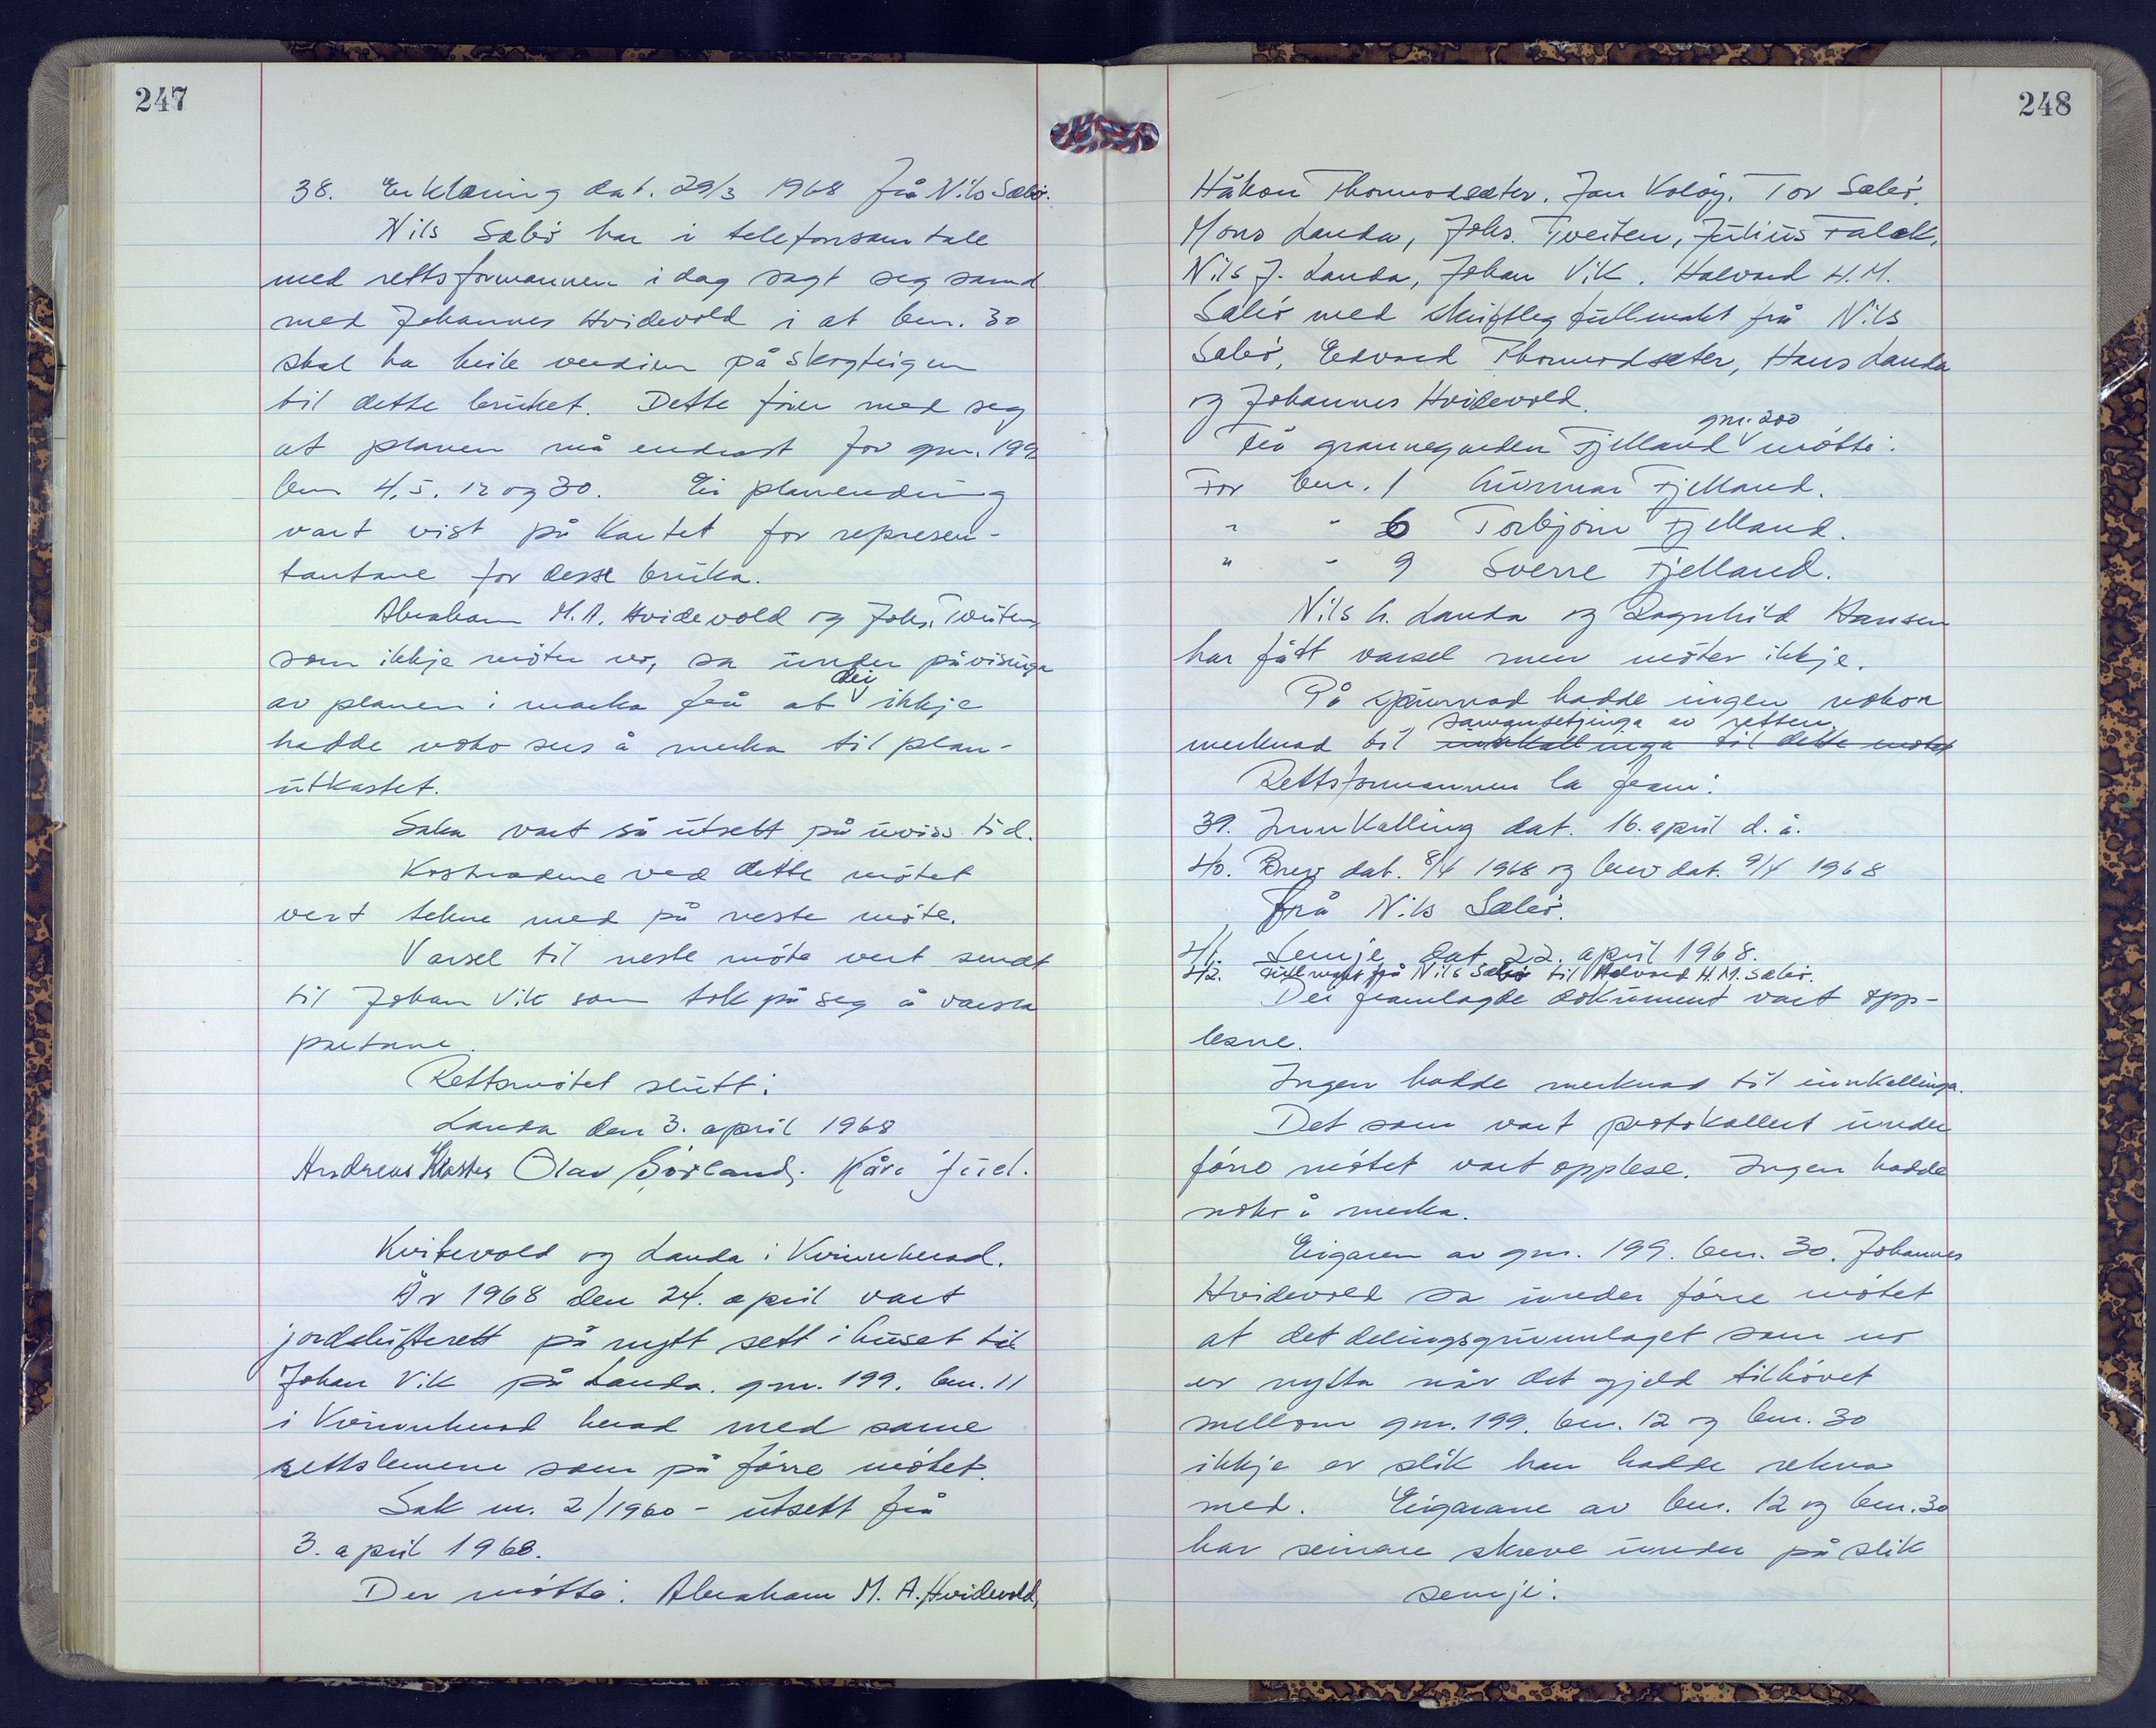 247
38. Erklæring dat. 29/3 1968 frå Nils Sæbö.
Nils Sæbö har i telefonsamtale
med rettsformannen i dag sagt seg samd
med Johannes Hvidevold i at bnr. 30
skal ha heile verdien på skogteigen
til dette bruket. Dette förer med seg
at planen må endrast for gnr. 199
bnr 4, 5, 12 og 30. Ei planendring
vart vist på kartet for represen-
tantane for desse bruka.
Abraham M.A. Hvidevold og Johs. Tveiten,
som ikkje möter no, sa under påvisinga
av planen i marka frå at dei ikkje
hadde noko sers å merka til plan-
utkastet.
Saka vart så utsett på uviss tid.
Kostnadene ved dette mötet
vert tekne med på neste möte.
Varsel til neste möte vert sendt
til Johan Vik som tok på seg å varsla
partane.
Rettsmötet slutt.
Landa den 3. april 1968
Andreas Kloster Olav Sörland. Kåre Juel.
Kvitevold og Landa i Kvinnherad.
År 1968 den 24. april vart
jordskifterett på nytt sett i huset til
Johan Vik på Landa. gnr. 199. bnr. 11
i Kvinnherad herad med same
rettslemene som på förre mötet.
Sak nr. 2/1960 - utsett frå
3. april 1968.
Der mötte: Abraham M. A. Hvidevold,
248
Håkon Thormodsæter. Jan Valöy. Tor Sæbö.
Mons Landa, Johs. Tveiten, Julius Falck,
Nils J. Landa, Johan Vik. Halvard H.M.
Sæbö med skriftleg fullmakt frå Nils
Sæbö, Edvard Thormodsæter, Hans Landa
og Johannes Hvidevold.
Frå grannegarden Fjelland gnr. 200 mötte:
For bnr. 1 Gunnar Fjelland.
" " 6 Torbjörn Fjelland.
" " 9 Sverre Fjelland.
Nils h. Landa og Ragnhild Hansen
har fått varsel men möter ikkje.
På spurnad hadde ingen nokon
merknad til innkallinga til dette mötet samansetjinga av retten.
Rettsformannen la fram:
39. Innkalling dat. 16. april d. å.
40. Brev dat. 8/4 1968 og brev dat. 9/4 1968
frå Nils Sæbö.
41. Semje dat. 22. april 1968.
42. Fullmakt frå Nils Sæbö til Halvard H.M. Sæbö.
Dei framlagde dokument vart opp-
lesne.
Ingen hadde merknad til innkallinga.
Det som vart protokollert under
förre mötet vart opplese. Ingen hadde
noko å merka.
Eigaren av gnr. 199. bnr. 30. Johannes
Hvidevold sa under förre mötet
at det delingsgrunnlaget som no
er nytta når det gjeld tilhövet
mellom gnr. 199. bnr. 12 og bnr. 30
ikkje er slik han hadde rekna
med. Eigarane av bnr. 12 og bnr. 30
har seinare skreve under på slik
semje: